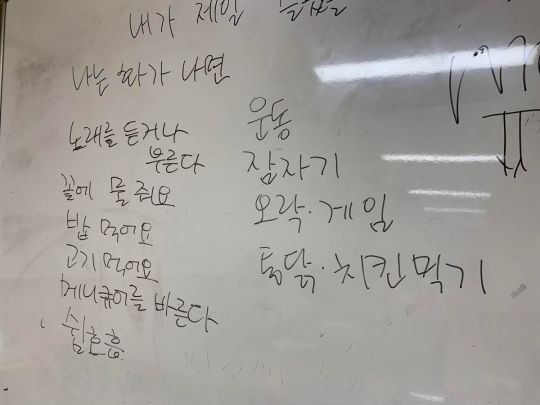 내가 제일
나는 화가 나면
노래를 듣거나
부른다
꽃에 물 줘요
밥 먹어요
고기 먹어요
메니큐어를 바른다
심호흡
운동
잠자기
오락·게임
통닭·치킨 먹기